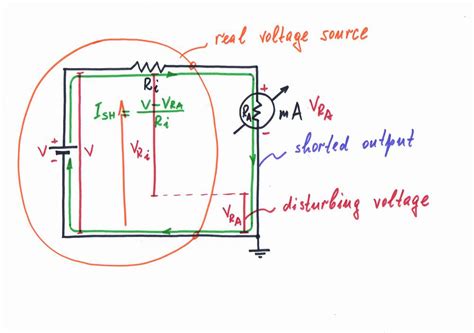 real voltage source
Ri
I SH = V - VRA / Ri
RA
mA VRA
+
-
V
+
-
V
VRi
shorted output
VRA
disturbing voltage